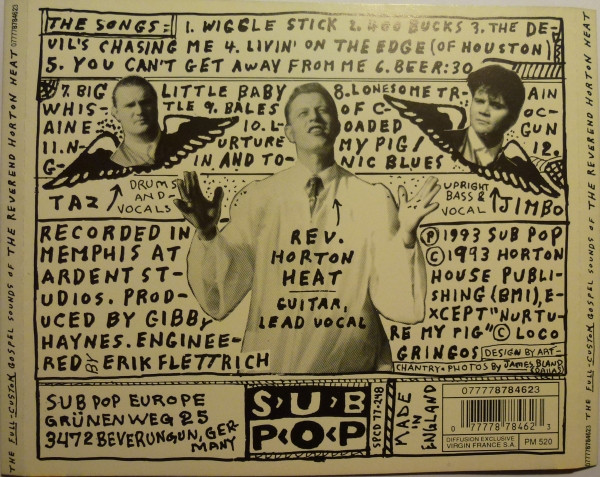 THE FULL-CUSTOM GOSPEL SOUNDS OF THE REVEREND HORTON HEAT 077778784623
THE SONGS: 1. WIGGLE STICK 2. 400 BUCKS 3. THE DE-
VIL'S CHASING ME 4. LIVIN' ON THE EDGE (OF HOUSTON)
5. YOU CAN'T GET AWAY FROM ME 6. BEER:30
7. BIG LITTLE BABY 8. LONESOME TR- AIN
WHIS- TLE 9. BALES OF C- OC-
AINE 10. L- OADED GUN
11. N- URTURE MY PIG/ 12.
G- IN AND TO- NIC BLUES
TAZ
DRUMS
AND
VOCALS
REV.
HORTON
HEAT
GUITAR,
LEAD VOCAL
UPRIGHT
BASS &
VOCAL
JIMBO
RECORDED IN
MEMPHIS AT
ARDENT ST-
UDIOS. PROD-
UCED BY GIBBY
HAYNES. ENGINEE-
RED BY ERIK FLETTRICH
Ⓟ 1993 SUB POP
© 1993 HORTON
HOUSE PUBLI-
SHING (BMI), E-
XCEPT "NURTU-
RE MY PIG" © LOCO
GRINGOS
DESIGN BY ART-
CHANTRY • PHOTOS BY JAMES BLAND
(DALLAS)
SUB POP EUROPE
GRÜNENWEG 25
3472 BEVERUNGUN, GER-
MANY
SUB
POP
SPCD 77-248
MADE IN
ENGLAND
077778784623
0 77778 78462 3
DIFFUSION EXCLUSIVE
VIRGIN FRANCE S.A.
PM 520
THE FULL-CUSTOM GOSPEL SOUNDS OF THE REVEREND HORTON HEAT 077778784623